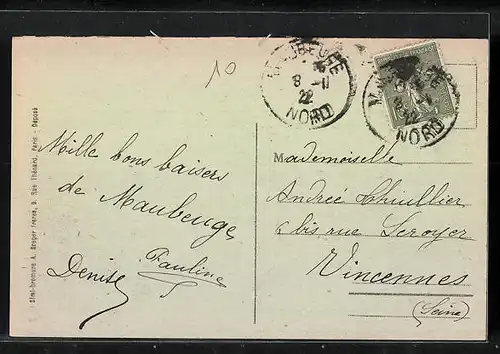 10
MAUBEUGE
8 -11
22
NORD
MAUBEUGE
8 -11
22
NORD
Mille bons baisers
de Maubeuge
Pauline
Denise
Mademoiselle
Andrée Chuillier
6 bis rue Leroyer
Vincennes
(Seine)
Simi-bromure A. Breger frères, 9, Rue Thénard, Paris - Déposé